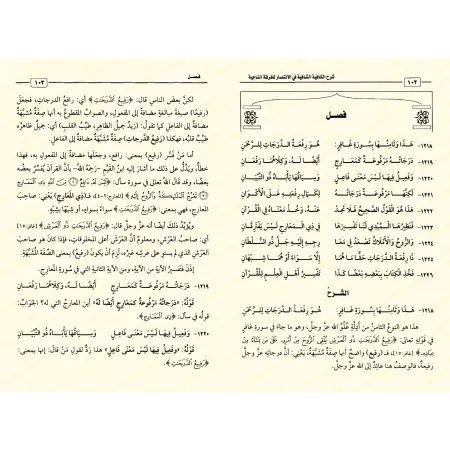 شرح الكافية الشافية في الانتصار للفرقة الناجية
١٠٢
فصل
١٢١٨- هَذَا وَثَامِنُهَا بِسُورَةِ غَافِرٍ هُوَ رِفْعَةُ الدَّرَجَاتِ لِلرَّحْمَنِ
١٢١٩- دَرَجَاتُهُ مَرْفُوعَةٌ كَمَعَارِجٍ أَيْضًا لَهُ وَكِلَاهُمَا رَفْعَانِ
١٢٢٠- وَفَعِيلُ فِيهَا لَيْسَ مَعْنَى فَاعِلٍ وَسِيَاقُهَا يَأْبَاهُ ذُو التِّبْيَانِ
١٢٢١- لَكِنَّهَا مَرْفُوعَةٌ دَرَجَاتُهُ لِكَمَالِ رِفْعَتِهِ عَلَى الْأَكْوَانِ
١٢٢٢- هَذَا هُوَ الْقَوْلُ الصَّحِيحُ فَلَا تَحِدْ عَنْهُ، وَخُذْ مَعْنَاهُ فِي الْقُرْآنِ
١٢٢٣- فَنَظِيرُهَا الْمُبْدِي لَنَا تَفْسِيرَهَا فِي ذِي الْمَعَارِجِ لَيْسَ يَفْتَرِقَانِ
١٢٢٤- وَالرُّوحُ وَالْأَمْلَاكُ تَصْعَدُ فِي مَعَا رِجِهِ إِلَيْهِ جَلَّ ذُو السُّلْطَانِ
١٢٢٥- ذَا رِفْعَةُ الدَّرَجَاتِ حَقًّا مَا هُمَا إِلَّا سَوَاءٌ أَوْ هُمَا شِبْهَانِ
١٢٢٦- فَخُذِ الْكِتَابَ بِبَعْضِهِ بَعْضًا كَذَا تَفْسِيرُ أَهْلِ الْعِلْمِ لِلْقُرْآنِ
الشرح
١٢١٨- هَذَا وَثَامِنُهَا بِسُورَةِ غَافِرٍ هُوَ رِفْعَةُ الدَّرَجَاتِ لِلرَّحْمَنِ
هذا هو النوعُ الثامنُ من أدلةِ عُلُوِّ الله عزَّ وجلَّ، وهو ما جاءَ في سورةِ غافرٍ
في قوله تعالى: ﴿رَفِيعُ الدَّرَجَاتِ ذُو الْعَرْشِ يُلْقِي الرُّوحَ مِنْ أَمْرِهِ عَلَى مَنْ يَشَاءُ مِنْ
عِبَادِهِ﴾ [غافر: ١٥]، فـ (رفيع) واضحٌ أنها صِفَةٌ مُشَبَّهَةٌ، يعني: أنَّ درجاتِه عزَّ وجلَّ
رفيعةٌ، فالوصفُ هنا عائدٌ إلى الله عزَّ وجلَّ.
فصل
١٠٣
لكنَّ بعضَ الناسِ قال: ﴿رَفِيعُ الدَّرَجَاتِ﴾ أي: رافعُ الدرجاتِ، فجعَلَ
(رفيعًا) صيغةَ مبالغةٍ مضافةً إلى المفعولِ، والصوابُ المقطوعُ به أنها صِفَةٌ مُشَبَّهَةٌ
مضافةٌ إلى الفاعلِ كما تقولُ: (زيدٌ جميلُ الظاهرِ، طيبُ القلبِ) أي: جميلٌ ظاهرُه
طيبٌ قلبُه، فهكذا (رفيعُ الدرجاتِ) صِفَةٌ مُشَبَّهَةٌ مضافةٌ إلى الفاعلِ.
أما مَنْ فَسَّرَ (رفيع) بمعنى: رافع، وجعَلَها مضافةً إلى المفعولِ به، فهذا
خطأٌ، ويدُلُّ على ذلك ما أشارَ إليه ابنُ القيِّمِ -رَحِمَهُ اللهُ- بأنَّ القرآنَ يُفَسِّرُ بعضُه
بعضًا، وقد قالَ اللهُ تعالى في سورةِ سألَ: ﴿لَيْسَ لَهُ دَافِعٌ ۝ مِنَ اللَّهِ ذِي الْمَعَارِجِ
۝ تَعْرُجُ الْمَلَائِكَةُ وَالرُّوحُ إِلَيْهِ﴾ [المعارج: ٢-٤]، فـ (ذِي الْمَعَارِجِ) يعني: صاحبَ
المعارجِ، فهي بمعنى: ﴿رَفِيعُ الدَّرَجَاتِ﴾ سواءً بسواءٍ، أو شبيهًا بشبيهٍ.
ويُؤَيِّدُ ذلك أيضًا أنه عزَّ وجلَّ قال: ﴿رَفِيعُ الدَّرَجَاتِ ذُو الْعَرْشِ﴾ [غافر: ١٥]
أي: صاحبُ العَرْشِ، ومعلومٌ أنَّ العَرْشَ أعلى المخلوقاتِ، فإذا كان هو صاحبَ
العَرْشِ الذي لم يستوِ على عرشِه غيرُه، لَزِمَ أنْ يكونَ (رفيع) بمعنى الصفةِ المُشَبَّهَةِ.
إذن فتفسيرُ الآيةِ من الآيةِ، ومن الآيةِ الثانيةِ التي في سُورةِ المعارجِ.
١٢١٩- دَرَجَاتُهُ مَرْفُوعَةٌ كَمَعَارِجٍ أَيْضًا لَهُ، وَكِلَاهُمَا رَفْعَانِ
قولُهُ: «دَرَجَاتُهُ مَرْفُوعَةٌ كَمَعَارِجٍ أَيْضًا لَهُ» أينَ المعارجُ التي له؟ الجوابُ:
قولُه في سورةِ سألَ: ﴿ذِي الْمَعَارِجِ﴾.
١٢٢٠- وَفَعِيلُ فِيهَا لَيْسَ مَعْنَى فَاعِلٍ وَسِيَاقُهَا يَأْبَاهُ ذُو التِّبْيَانِ
قولُهُ: «وَفَعِيلُ فِيهَا لَيْسَ مَعْنَى فَاعِلٍ» هذا رَدٌّ لقولِ مَنْ قالَ: إنها بمعنى:
﴿رَفِيعُ الدَّرَجَاتِ﴾